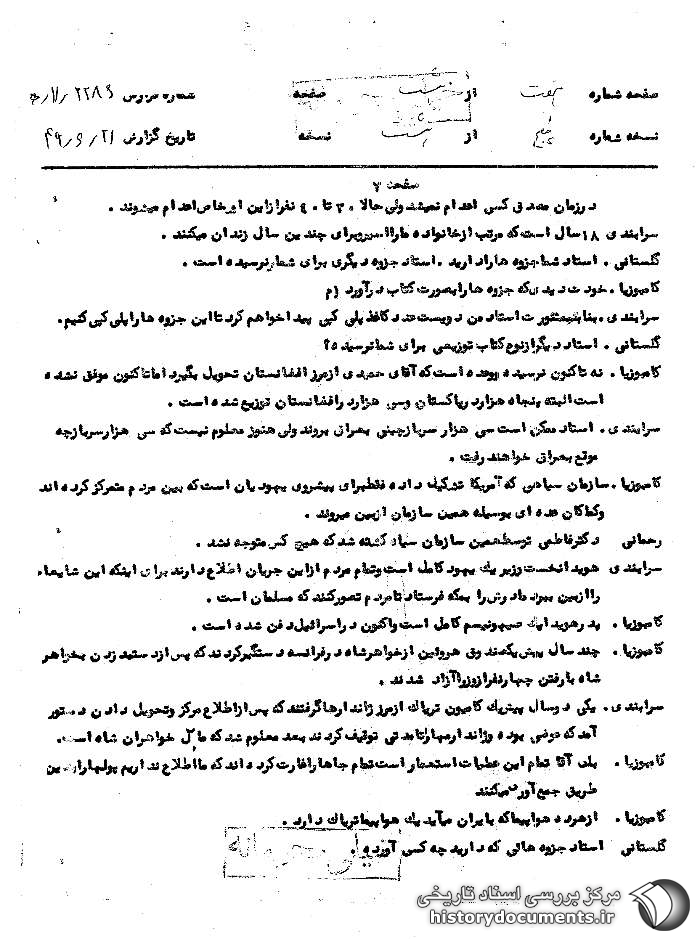 صفحه شماره هفت از هشت صفحه شماره عریوس
نسخه شماره پنج از بیست نسخه تاریخ گزارش ۴۹/۶/۲۱
صفحه ۷
در زمان مصدق کسی اعدام نمیشد ولی حالا ۳۰ تا ۴۰ نفر از این اشخاص اعدام میشوند .
سرابندی ۱۸ سال است که مرتب از خانواده ما را اسیر و برای چندین سال زندان میکنند .
گلستانی . استاد شما جزوه ها را دارید . استاد جزوه دیگری برای شما نرسیده است .
کامبوزیا . خودت دیدی که جزوه ها را بصورت کتاب درآورده ام
سرابندی . استاد من دویست عدد کاغذ پلی کپی پیدا خواهم کرد تا این جزوه ها را پلی کپی کنیم .
گلستانی . استاد دیگر از نوع کتاب توزیعی برای شما نرسیده ؟
کامبوزیا . نه تاکنون نرسیده بوده است که آقای حمیدی از مرز افغانستان تحویل بگیرد اما تاکنون موفق نشده
است البته پنجاه هزار در پاکستان وسی هزار در افغانستان توزیع شده است .
سرابندی . استاد ممکن است سی هزار سرباز چینی بعراق بروند ولی هنوز معلوم نیست که سی هزار سرباز چه
موقع بعراق خواهند رفت .
کامبوزیا . سازمان سیاهی که آمریکا تشکیل داده فقط برای پیشروی یهودیان است که بین مردم متمرکز کرده اند
وکماکان عده ای بوسیله همین سازمان ازبین میروند .
رحمانی دکتر فاطمی توسط همین سازمان سیاه کشته شد که هیچ کس متوجه نشد .
سرابندی هویدا نخست وزیر یک یهود کامل است وتمام مردم از این جریان اطلاع دارند برای اینکه این شایعه
را ازبین ببرد مادرش را بمکه فرستاد تا مردم تصور کنند که مسلمان است .
کامبوزیا . پدر هویدا یک صیهونیسم کامل است واکنون در اسرائیل دفن شده است .
کامبوزیا . چند سال پیش یکصندوق هروئین از خواهر شاه در فرانسه دستگیر کردند که پس از دستبند زدن بخواهر
شاه با رفتن چهار نفر از وزرا آزاد شدند .
سرابندی . یکی دو سال پیش یک کامیون تریاک از مرز ژاندارمها گرفتند که پس از اطلاع مرکز وتحویل دادن دستور
آمد که عوضی بوده وژاندارمها را تا مدتی توقیف کردند بعد معلوم شد که مال خواهران شاه است .
کامبوزیا . بله آقا تمام این عملیات استعمار است تمام جاها را غارت کرده اند که ما اطلاع نداریم پولها را از این
طریق جمع آوری میکنند
کامبوزیا . از هر ده هواپیما که بایران میآید یک هواپیما تریاک دارد .
گلستانی استاد جزوه هائی که دارید چه کسی آورده .
خیلی محرمانه
مرکز بررسی اسناد تاریخی
historydocuments.ir